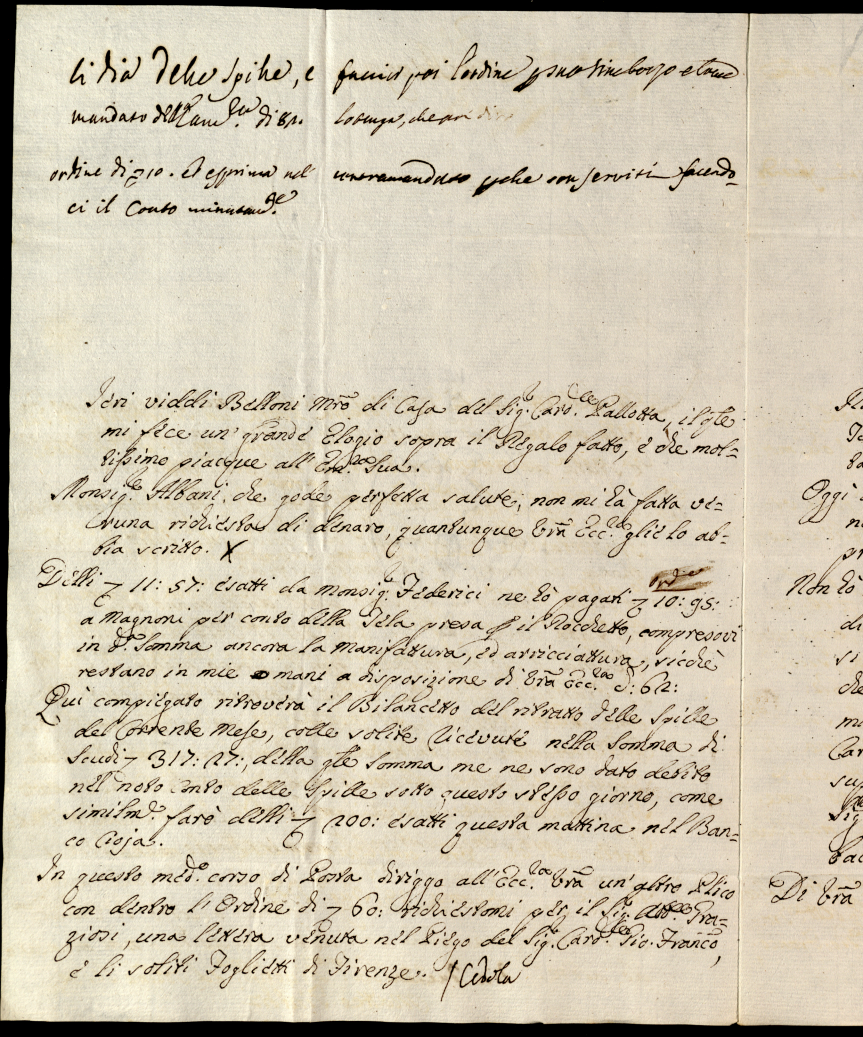 li dia delle spille, e
mandato dell'
ordine di 210. ed esprima nel
ci il Conto
poi l'ordine
losinga, che
contramandato che con serviti facendo-
Ieri viddi Belloni Mro di Casa del Sig.r Card.le Pallotta, il qle
mi fece un' grande Elogio sopra il Regalo fatto, e che mol=
tissimo piacque all' Em.za Sua.
Monsig.r Albani, che gode perfetta salute, non mi hà fatta ve=
runa richiesta di denaro, quantunque Vrã Ecc.za glie lo ab=
bia scritto. X
Delli 7 11: 57: esatti da Monsig.r Federici ne hò pagati 7 10: 95:
a Magnoni per conto della Tela presa p il Rocchetto, compresovi
in d.a Somma ancora la manifattura, ed arricciatura, sicchè
restano in mie mani a disposizione di Vrã Ecc.za d: 62:
Quì compiegato ritroverà il Bilancetto del ritratto delle Spille
del Corrente Mese, colle solite ricevute nella Somma di
Scudi 7 317: 27:, della qle Somma me ne sono dato debito
nel noto Conto delle Spille sotto questo stesso giorno, come
similm.e farò delli 7 200: esatti questa mattina nel Ban=
co Gioja.
In questo med.o corso di Posta diriggo all' Ecc.za Vrã un' altro Plico
con dentro l' Ordine di 7 60: richiestomi per il Sig.r Gra=
ziosi, una lettera venuta nel Piego del Sig.r Card.le Gio. Franco,
e li soliti Foglietti di Firenze. / Cedola
Oggi
Non hò
di
si
che
Car
Sig
Di Vrã